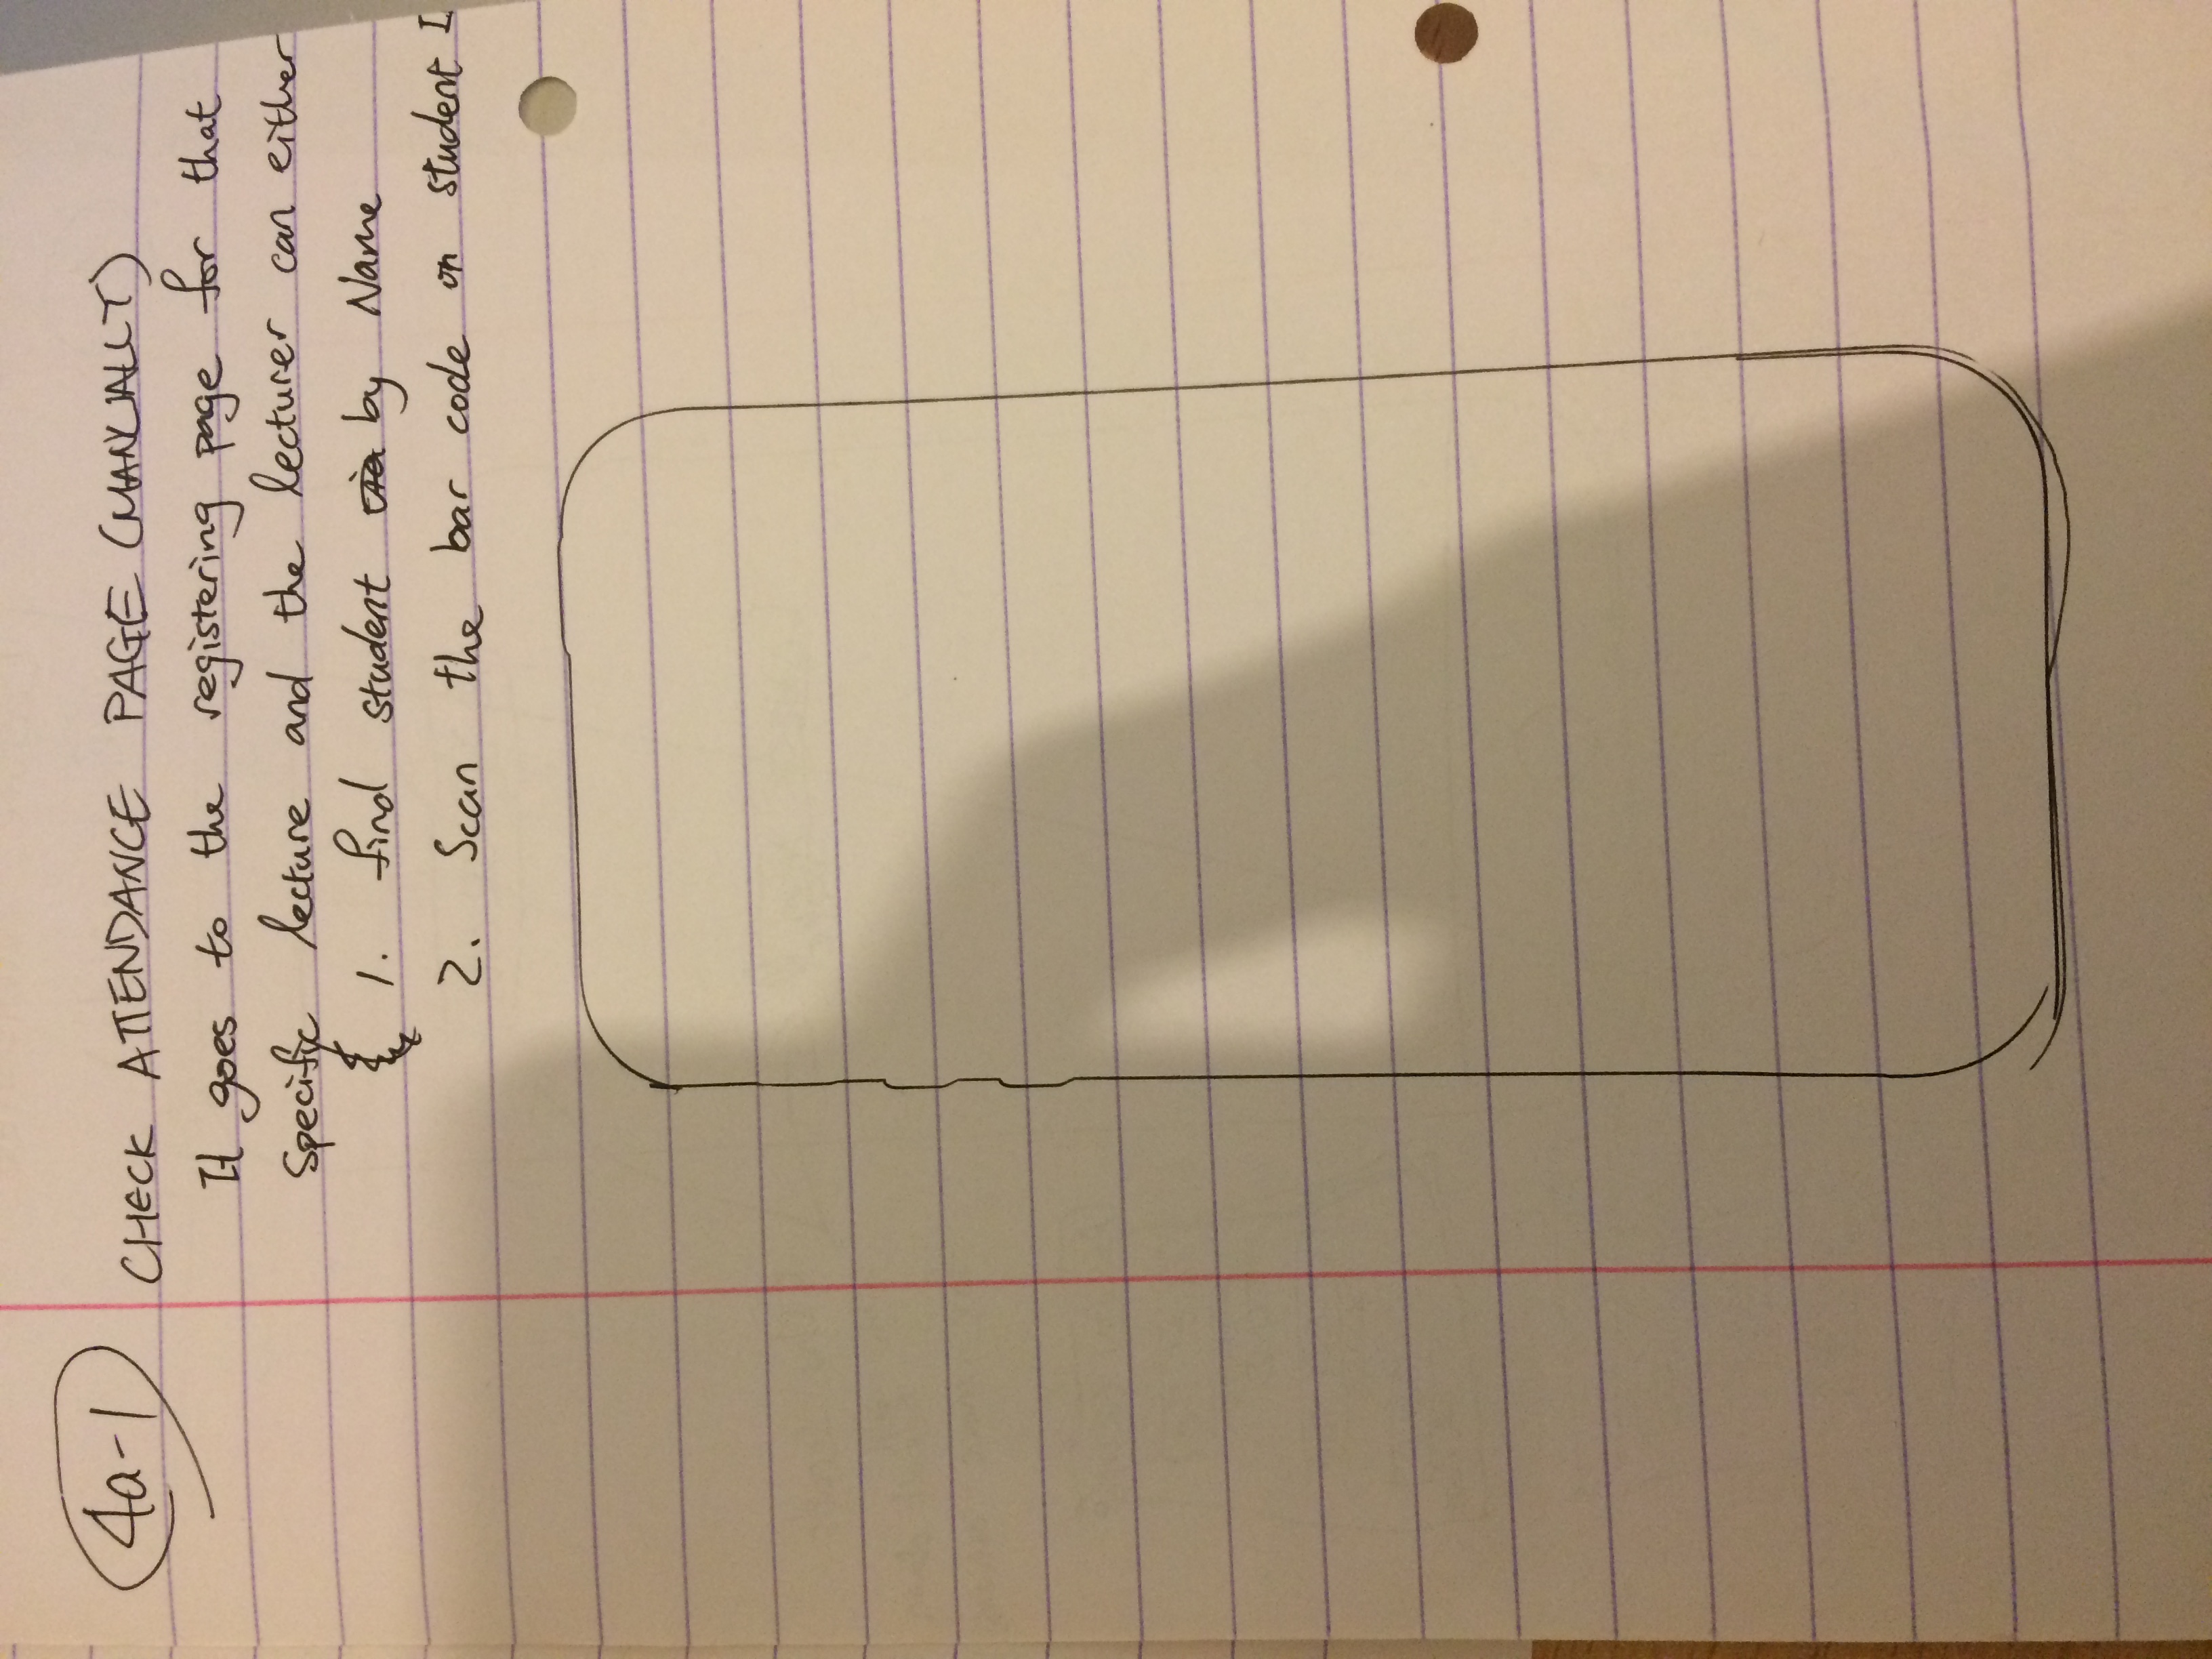 4a-1 CHECK ATTENDANCE PAGE (MANUALLY)
It goes to the registering page for that
specific lecture and the lecturer can either
1. find student via by Name
2. Scan the bar code on student I